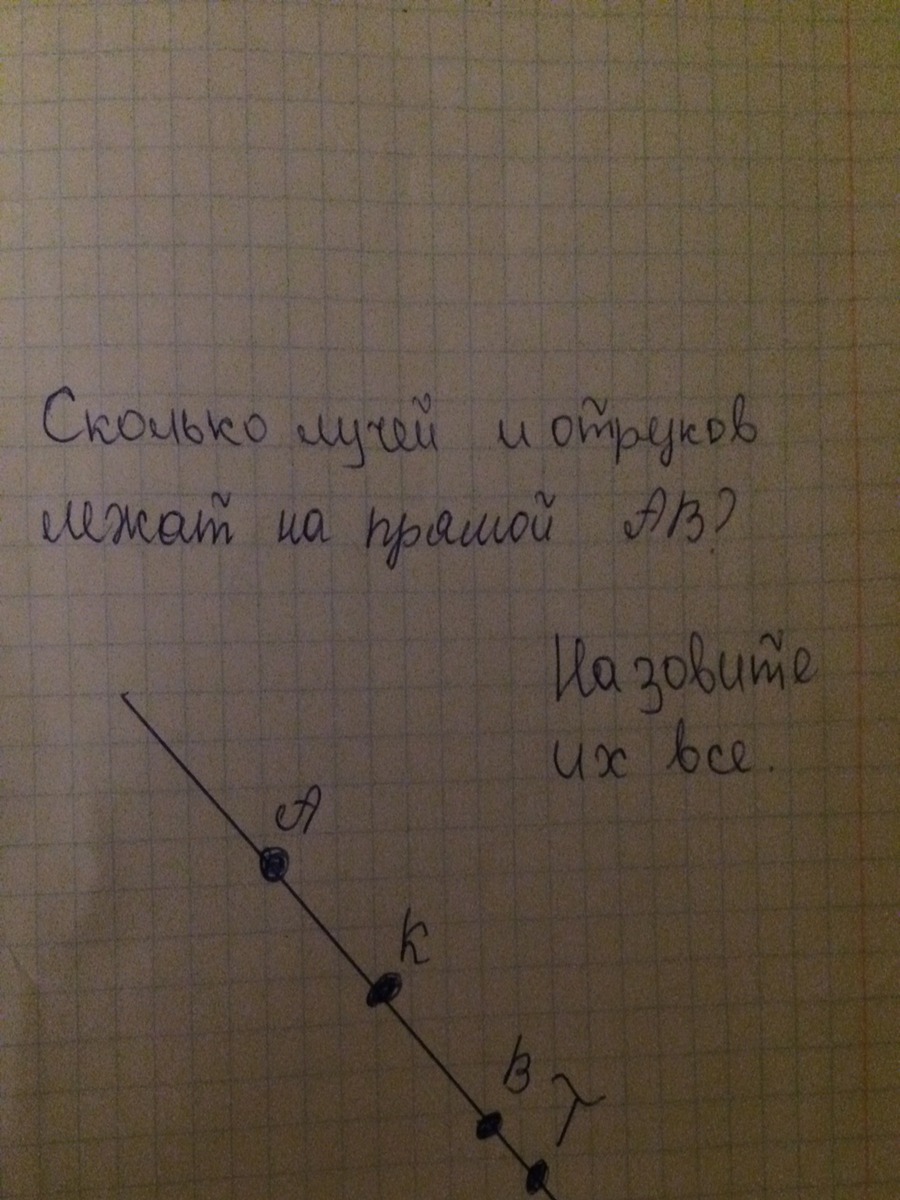 Сколько лучей и отруков
лежат на прямой АВ?
Назовите
их все.
А
К
В
λ